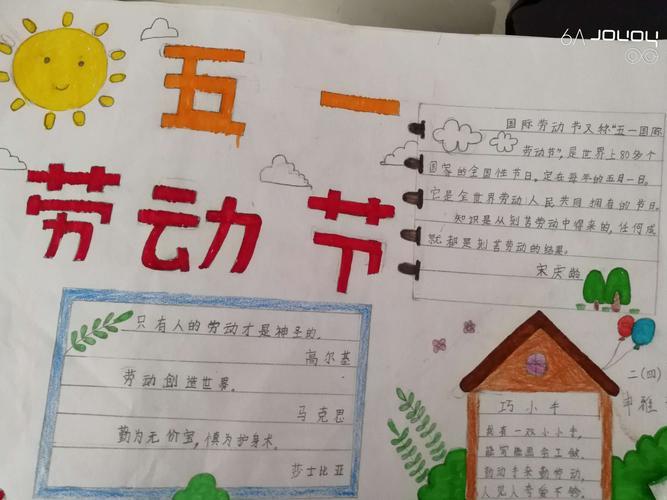 6A JOYOY
五一
劳动节
国际劳动节又称"五一国际
劳动节",是世界上80多个
国家的全国性节日。定在每年的五月一日。
它是全世界劳动人民共同拥有的节日。
知识是从刻苦劳动中得来的,任何成
就都是刻苦劳动的结果。
宋庆龄
只有人的劳动才是神圣的。
高尔基
劳动创造世界。
马克思
勤为无价宝,慎为护身术。
莎士比亚
二(四)
巧小手
我有一双小小手,
能写
勤动手来勤劳动,
人见人夸